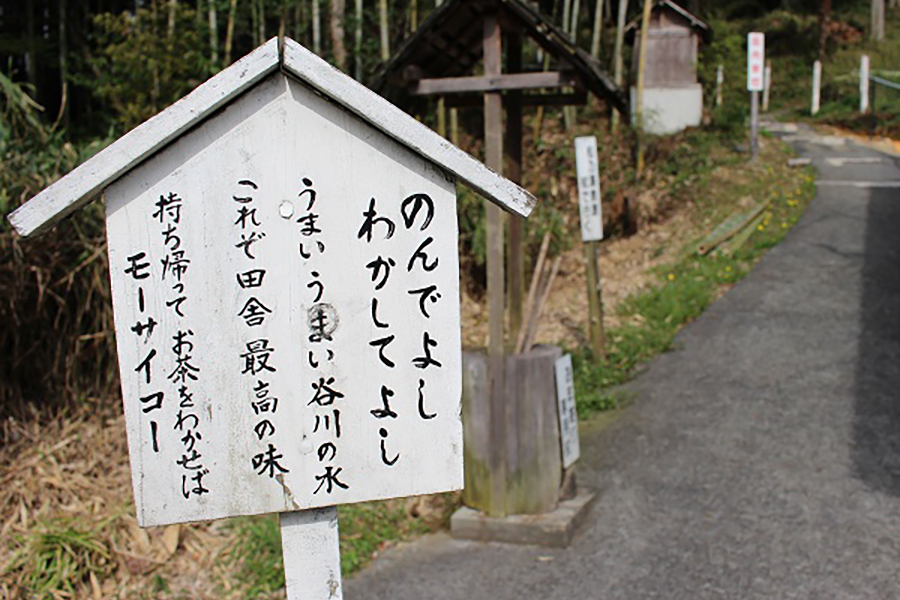 のんでよし
わかしてよし
うまいうまい谷川の水
これぞ田舎最高の味
持ち帰って お茶をわかせば
モーサイコー